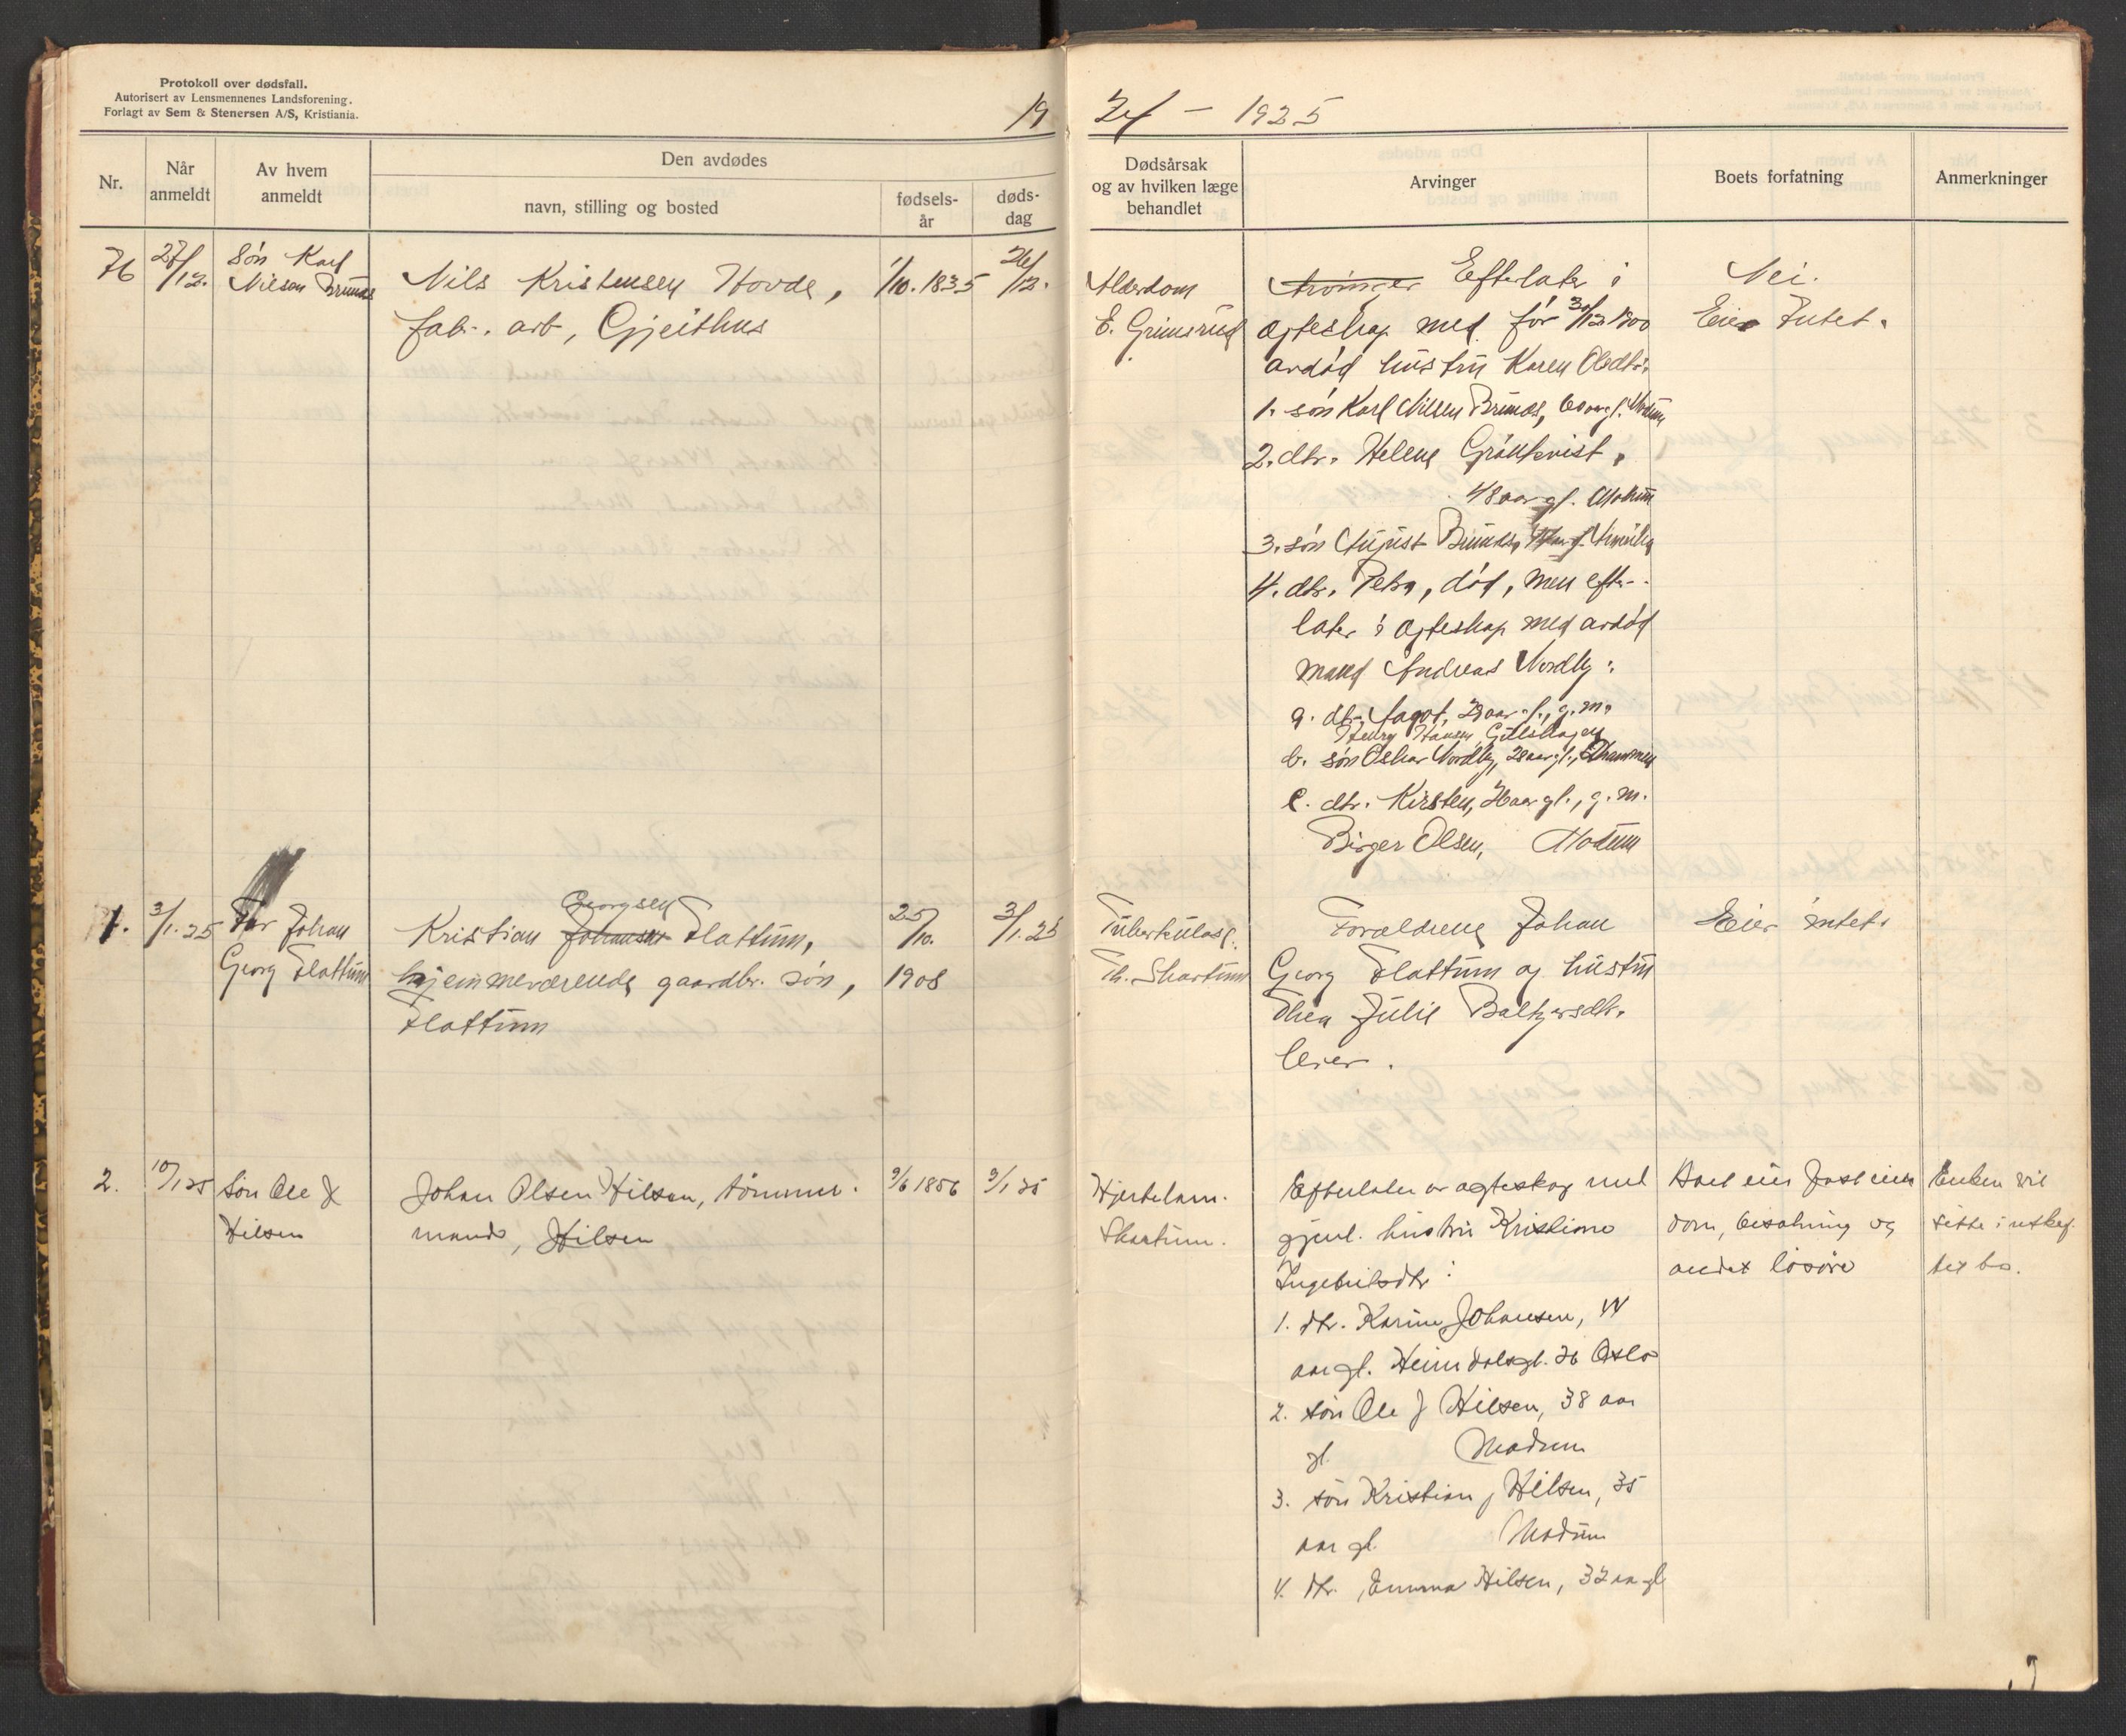 Protokoll over dødsfall.
Autorisert av Lensmennenes Landsforening.
Forlagt av Sem & Stenersen A/S, Kristiania.
19 24 – 1925
Nr.
Når anmeldt
Av hvem anmeldt
Den avdødes
navn, stilling og bosted
fødsels-år
døds-dag
Dødsårsak og av hvilken læge behandlet
Arvinger
Boets forfatning
Anmerkninger
76
27/12.
Søn Karl
Nilsen Brunæs
Nils Kristensen Hovde,
fab. arb, Gjeithus
1/10. 1835
26/12.
Alderdom
E. Grimsrud
Arvinger Efterlater i
egteskap med før 30/12 1900
avdød hustru Karen Olsdtr.
1. søn Karl Nilsen Brunæs, 60 aar gl. Modum
2. dtr. Helene Grönkvist,
48 aar gl. Modum
3. søn August Brunæs,
4. dtr. Petra, død, men efter-
later i egteskap med avdød
mand Andreas Nordby:
a. dtr. Aagot, 29 aar gl., g. m.
Henry Hansen, Gulskogen
b. søn Oskar Nordby, 28 aar gl., Drammen
c. dtr. Kirsten, 26 aar gl., g. m.
Birger Olsen, Modum
Nei.
Eier Intet.
1.
3/1.25
Far Johan
Georg Flattum
Georgsen
Kristian Johansen Flattum,
hjemmeværende gaardbr. søn,
Flattum
25/10.
1908
3/1.25
Tuberkulose.
Th. Skartum
Forældrene Johan
Georg Flattum og hustru
Thea Julie Baltzersdtr.
lever.
Eier intet.
2.
10/1 25
Søn Ole J
Hilsen
Johan Olsen Hilsen, tømmer-
mand, Hilsen
9/6 1856
9/1 25
Hjertelam.
Skartum.
Efterlater av egteskap med
gjenl. hustru Kristiane
Ingebritsdtr:
1. dtr. Karine Johansen, 44
aar gl. Heimdalsgt. 26 Oslo
2. søn Ole J Hilsen, 38 aar
gl. Modum
3. søn Kristian J Hilsen, 35
aar gl. Modum
4. dtr. Emma Hilsen, 32 aar gl
Boet eier fast eien
dom, besætning og
andet løsøre
Enken vil
sitte i uskif
tet bo.